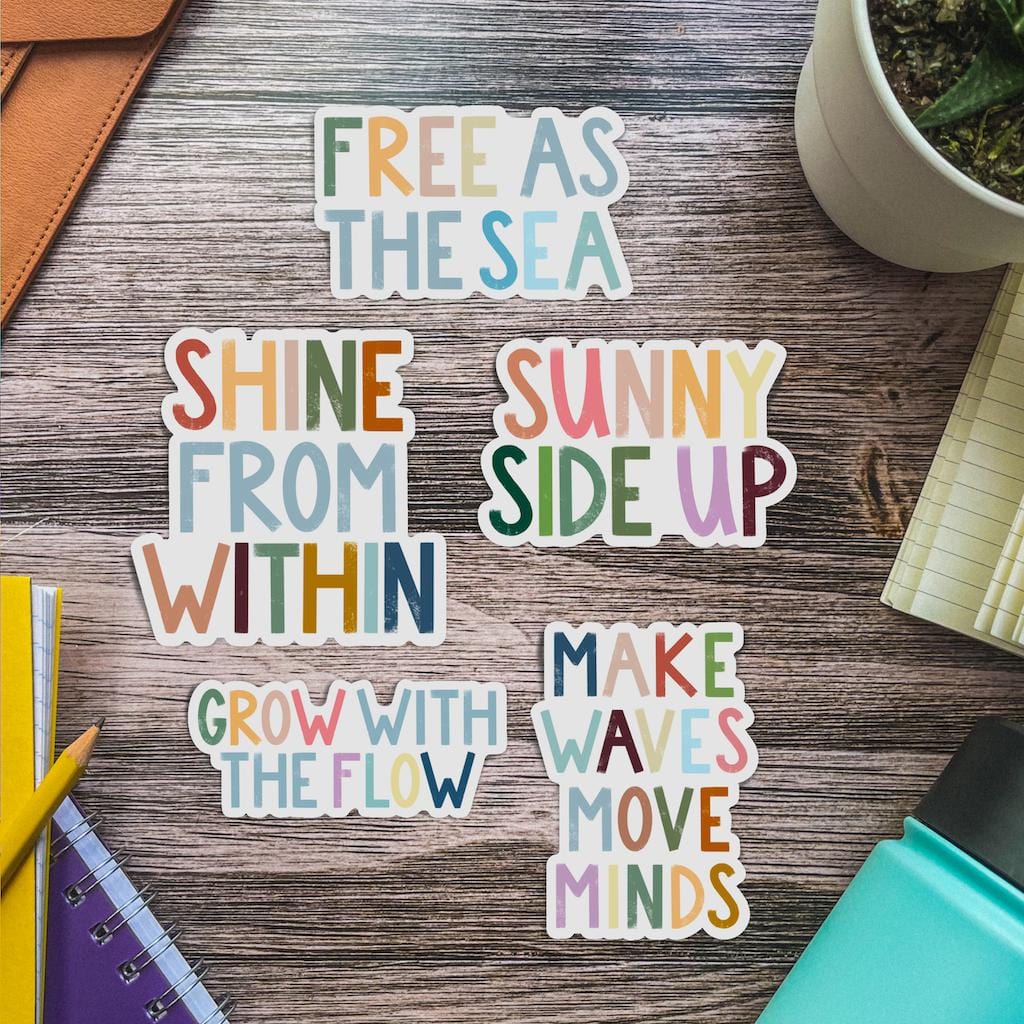 FREE AS
THE SEA
SHINE
FROM
WITHIN
SUNNY
SIDE UP
GROW WITH
THE FLOW
MAKE
WAVES
MOVE
MINDS